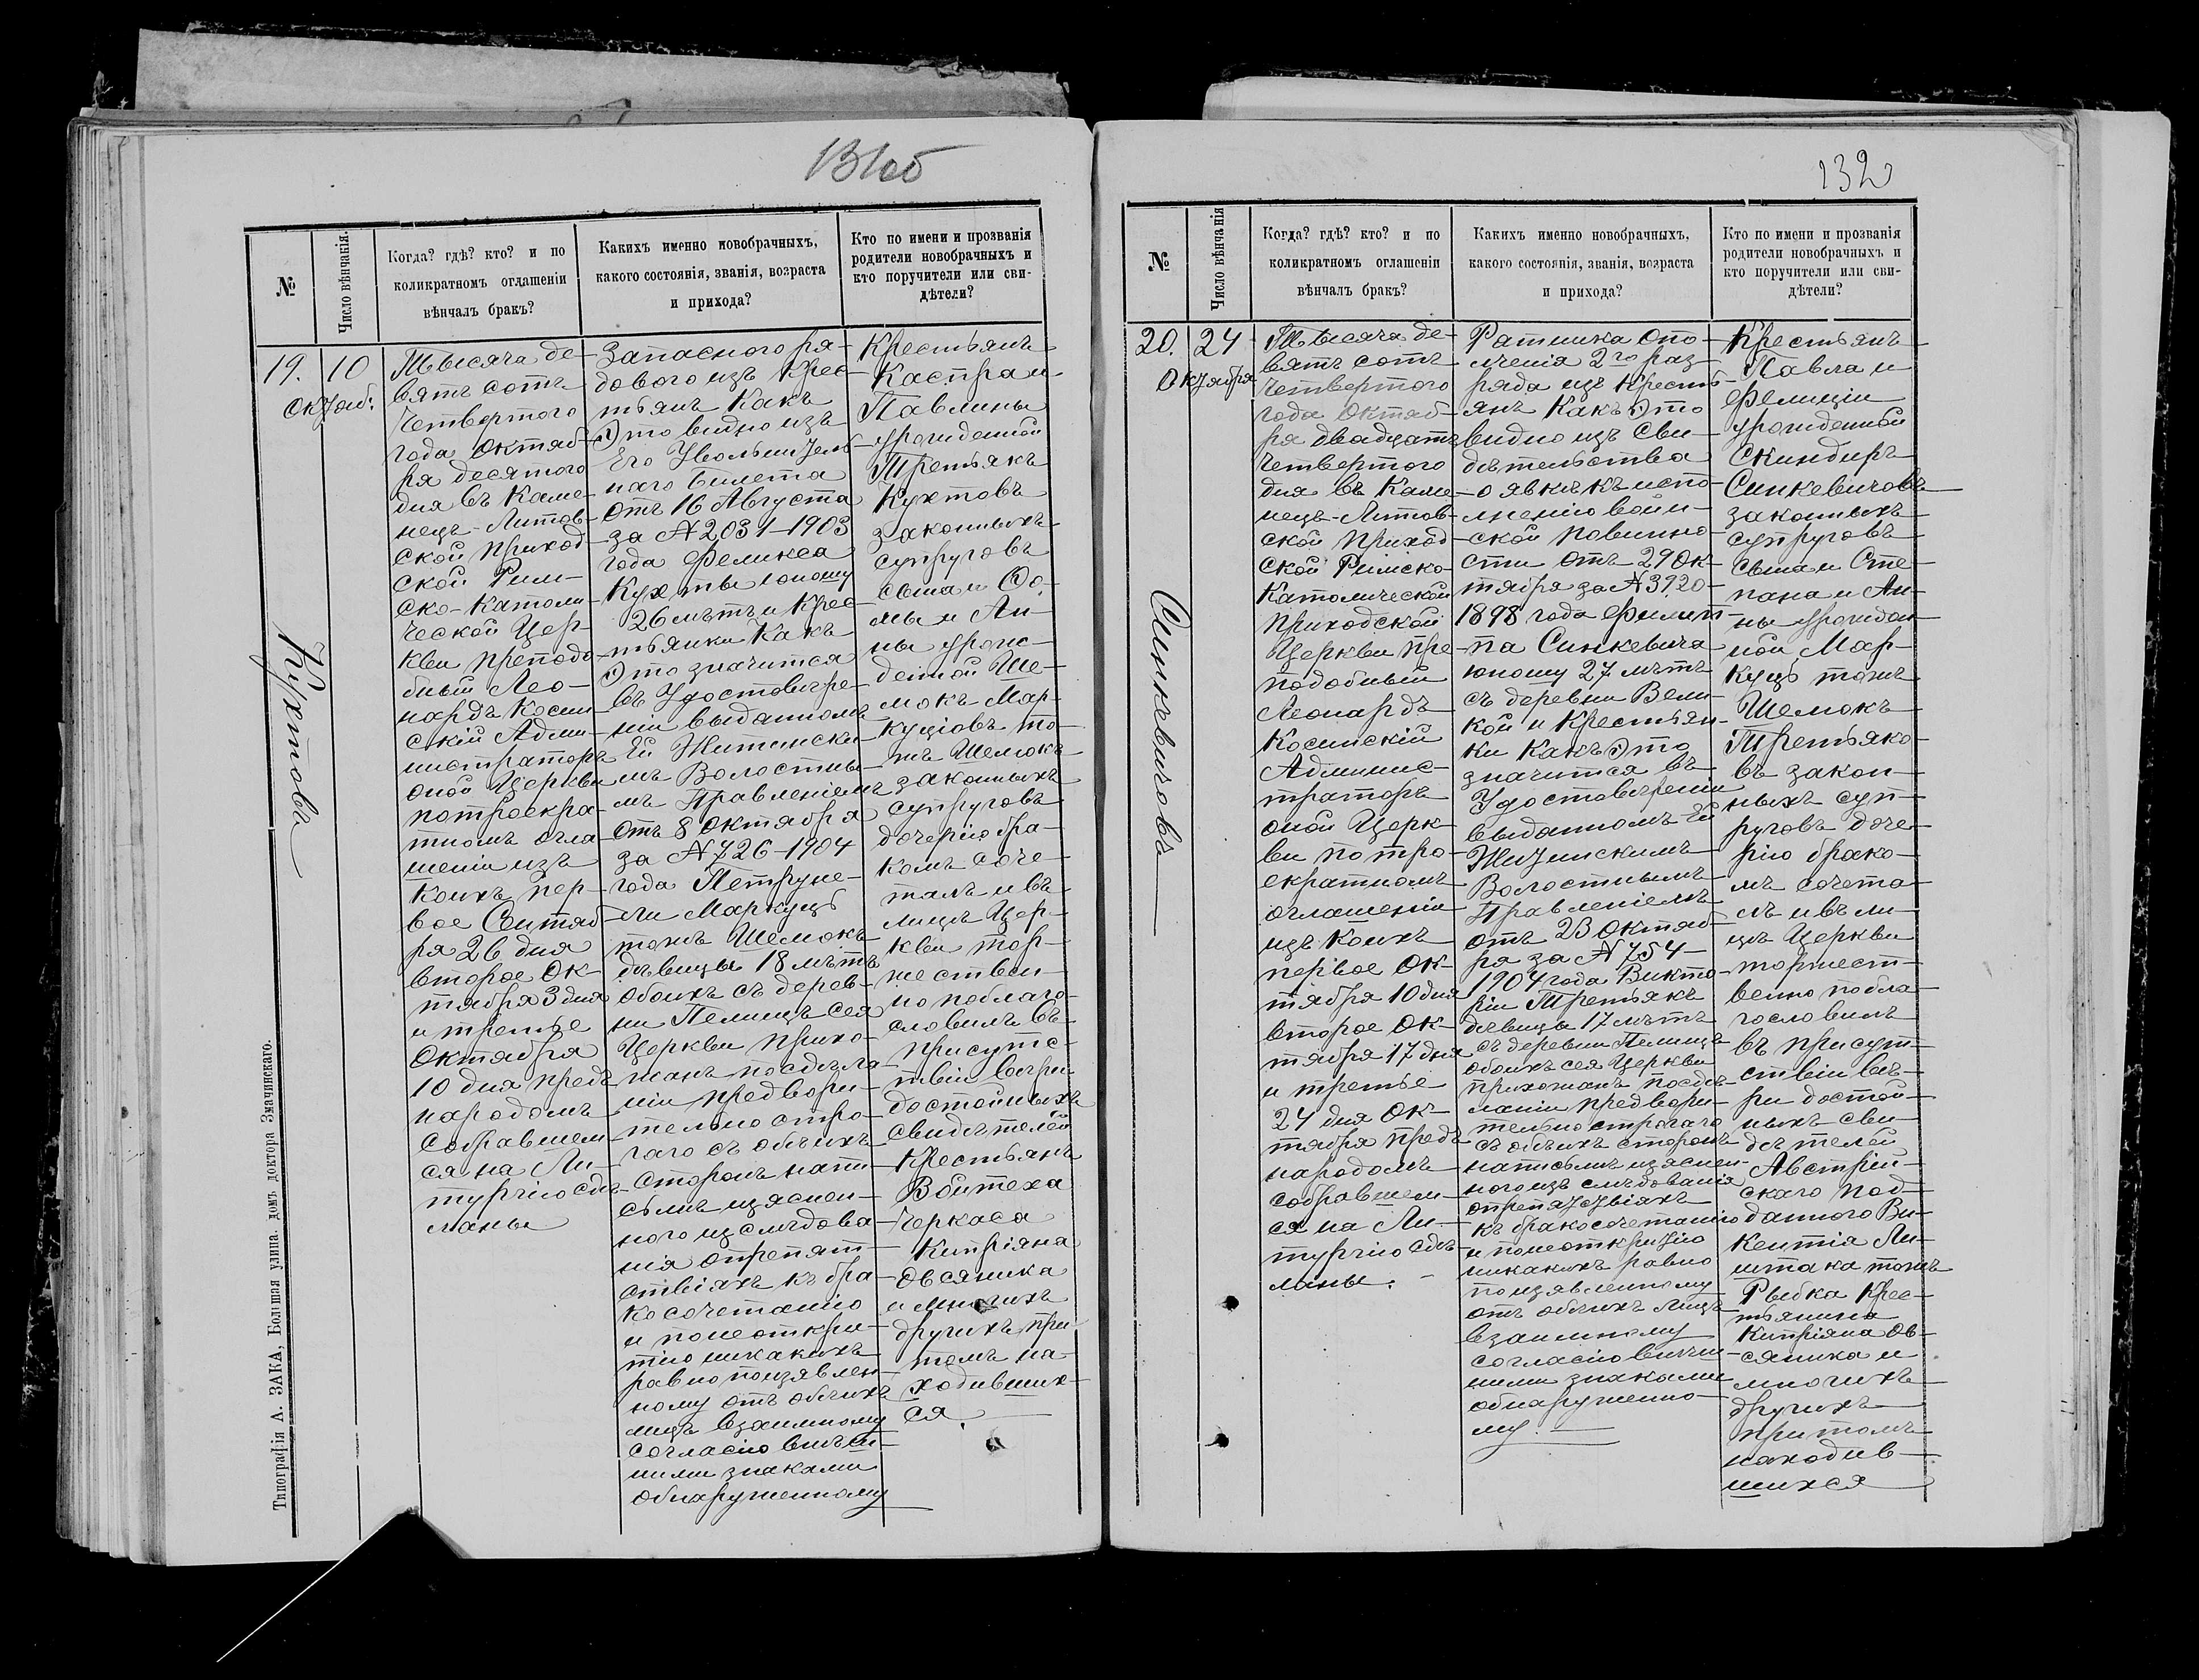 131об
№
Число вѣнчанія.
Когда? гдѣ? кто? и по
коликратномъ оглашеніи
вѣнчалъ бракъ?
Какихъ именно новобрачныхъ,
какого состоянія, званія, возраста
и прихода?
Кто по имени и прозванія
родители новобрачныхъ и
кто поручители или сви-
дѣтели?
19.
10
Октяб:
Кухтовъ
Тысяча де-
вятъ сотъ
четвертого
года Октяб-
ря десятого
дня въ Каме-
нецъ-Литов-
ской приход
ской Рим-
ско-Католи-
ческой Цер-
кви преподо-
бный Лео-
нардъ Косин-
скій Адми-
нистраторъ
оной Церкви
потроекра-
тномъ огла-
шеніи изъ
коихъ пер-
вое Сентяб-
ря 26 дня
второе Ок-
тября 3 дня
и третье
Октября
10 дня предъ
народомъ
собравшем-
ся на Ли-
тургію сдѣ-
ланы
Запасного ря-
дового изъ крес-
тьянъ Какъ
Это видно изъ
Его Увольнитель-
наго билета
отъ 16 Августа
за №2031-1903
года Феликса
Кухты юношу
26 лѣтъ и Крес-
тьянки Какъ
Это значится
въ Удостовѣре-
ніи выданномъ
Ей Житински-
мъ Волостны-
мъ Правленіемъ
отъ 8 Октября
за №726-1904
года Петруне-
ли Маркуць
тожъ Шемокъ
дѣвицы 18 лѣтъ
обоихъ съ дерев-
ни Пелищъ сея
Церкви прихо-
жанъ посдѣла-
ніи предвори-
тельно стро-
гаго съ обѣихъ
сторонъ напи-
сьмѣ изяснен-
ного изслѣдова-
нія опрепят-
ствіяхъ къ бра-
косочетанію
и понеоткры-
тію никакихъ
равно поизявлен-
ному отъ обѣихъ
лицъ взаимному
согласію внѣш-
ними знаками
обнаруженному
Крестьянъ
Каспра и
Павлины
урожденной
Третьякъ
Кухтовъ
законныхъ
супруговъ
сына и Фо-
мы и Ан-
ны урож-
денной Ше-
мокъ Мар-
куцовъ то-
жъ Шемокъ
законныхъ
супруговъ
дочерію бра-
комъ соче-
талъ и въ
лицѣ Цер-
кви тор-
жествен-
но поблаго-
словилъ въ
присутс-
твіи вѣри-
достойныхъ
свидѣтелей
Крестьянъ
Войтеха
Черкаса
Кипріяна
Овсяника
и многихъ
другихъ при
томъ на-
ходивших-
ся.
Типографія А. ЗАКА, Большая улица. домъ доктора Змачинскаго.
132
№
Число вѣнчанія
Когда? гдѣ? кто? и по
коликратномъ оглашеніи
вѣнчалъ бракъ?
Какихъ именно новобрачныхъ,
какого состоянія, званія, возраста
и прихода?
Кто по имени и прозванія
родители новобрачныхъ и
кто поручители или сви-
дѣтели?
20.
24
Октября
Синкевичовъ
Тысяча де-
вятъ сотъ
четвертого
года Октяб-
ря двадцатъ
четвертого
дня въ Каме-
нецъ-Литов-
ской приход-
ской Римско-
Католической
приходской
Церкви пре-
подобный
Леонардъ
Косинскій
Админис-
траторъ
оной Церк-
ви по тро-
екратномъ
оглашеніи
изъ коихъ
первое Ок-
тября 10 дня
второе Ок-
тября 17 дня
и третье
24 дня Ок-
тября предъ
народомъ
собравшем-
ся на Ли-
тургію сдѣ-
ланы.
Ратника Опо-
лченія 2го раз-
ряда изъ Кресть-
янъ Какъ Это
видно изъ Сви-
дѣтельства
о явкѣ къ испо-
лненію воин-
ской повинно-
сти отъ 29 Ок-
тября за №3920-
1898 года Филип-
па Синкевича
юношу 27 лѣтъ
съ деревни Вели-
кой и Крестьян-
ки Какъ Это
значится въ
Удостовѣреніи
выданномъ Ей
Житинскимъ
Волостнымъ
Правленіемъ
отъ 23 Октяб-
ря за №754-
1904 года Викто-
ріи Третьякъ
дѣвицы 17 лѣтъ
съ деревни Пелищъ
обоихъ сея Церкви
прихожанъ посдѣ-
ланіи предвори-
тельно строгаго
съ обѣихъ сторонъ
написьмѣ изяснен-
ного изслѣдованія
опрепятствіяхъ
къ бракосочетанію
и понеоткрытію
никакихъ равно
поизявленному
отъ обѣихъ лицъ
взаимному
согласію внѣш-
ними знаками
обнаруженно-
му.
Крестьянъ
Павла и
Фелиціи
урожденной
Скиндиръ
Синкевичовъ
законныхъ
супруговъ
сына и Сте-
пана и Ан-
ны урожден-
ной Мар-
куць тожъ
Шемокъ
Третьяко-
въ закон-
ныхъ суп-
руговъ доче-
рію брако-
мъ сочета-
лъ и въ ли-
цѣ Церкви
торжест-
венно побла-
гословилъ
въ присут-
ствіи вѣ-
ри достой-
ныхъ сви-
дѣтелей
Австрій-
скаго под-
данного Ви-
кентія Ли-
штака тожъ
Рыбка Крес-
тьянина
Кипріяна Ов-
сяника и
многихъ
другихъ
притомъ
находив-
шихся